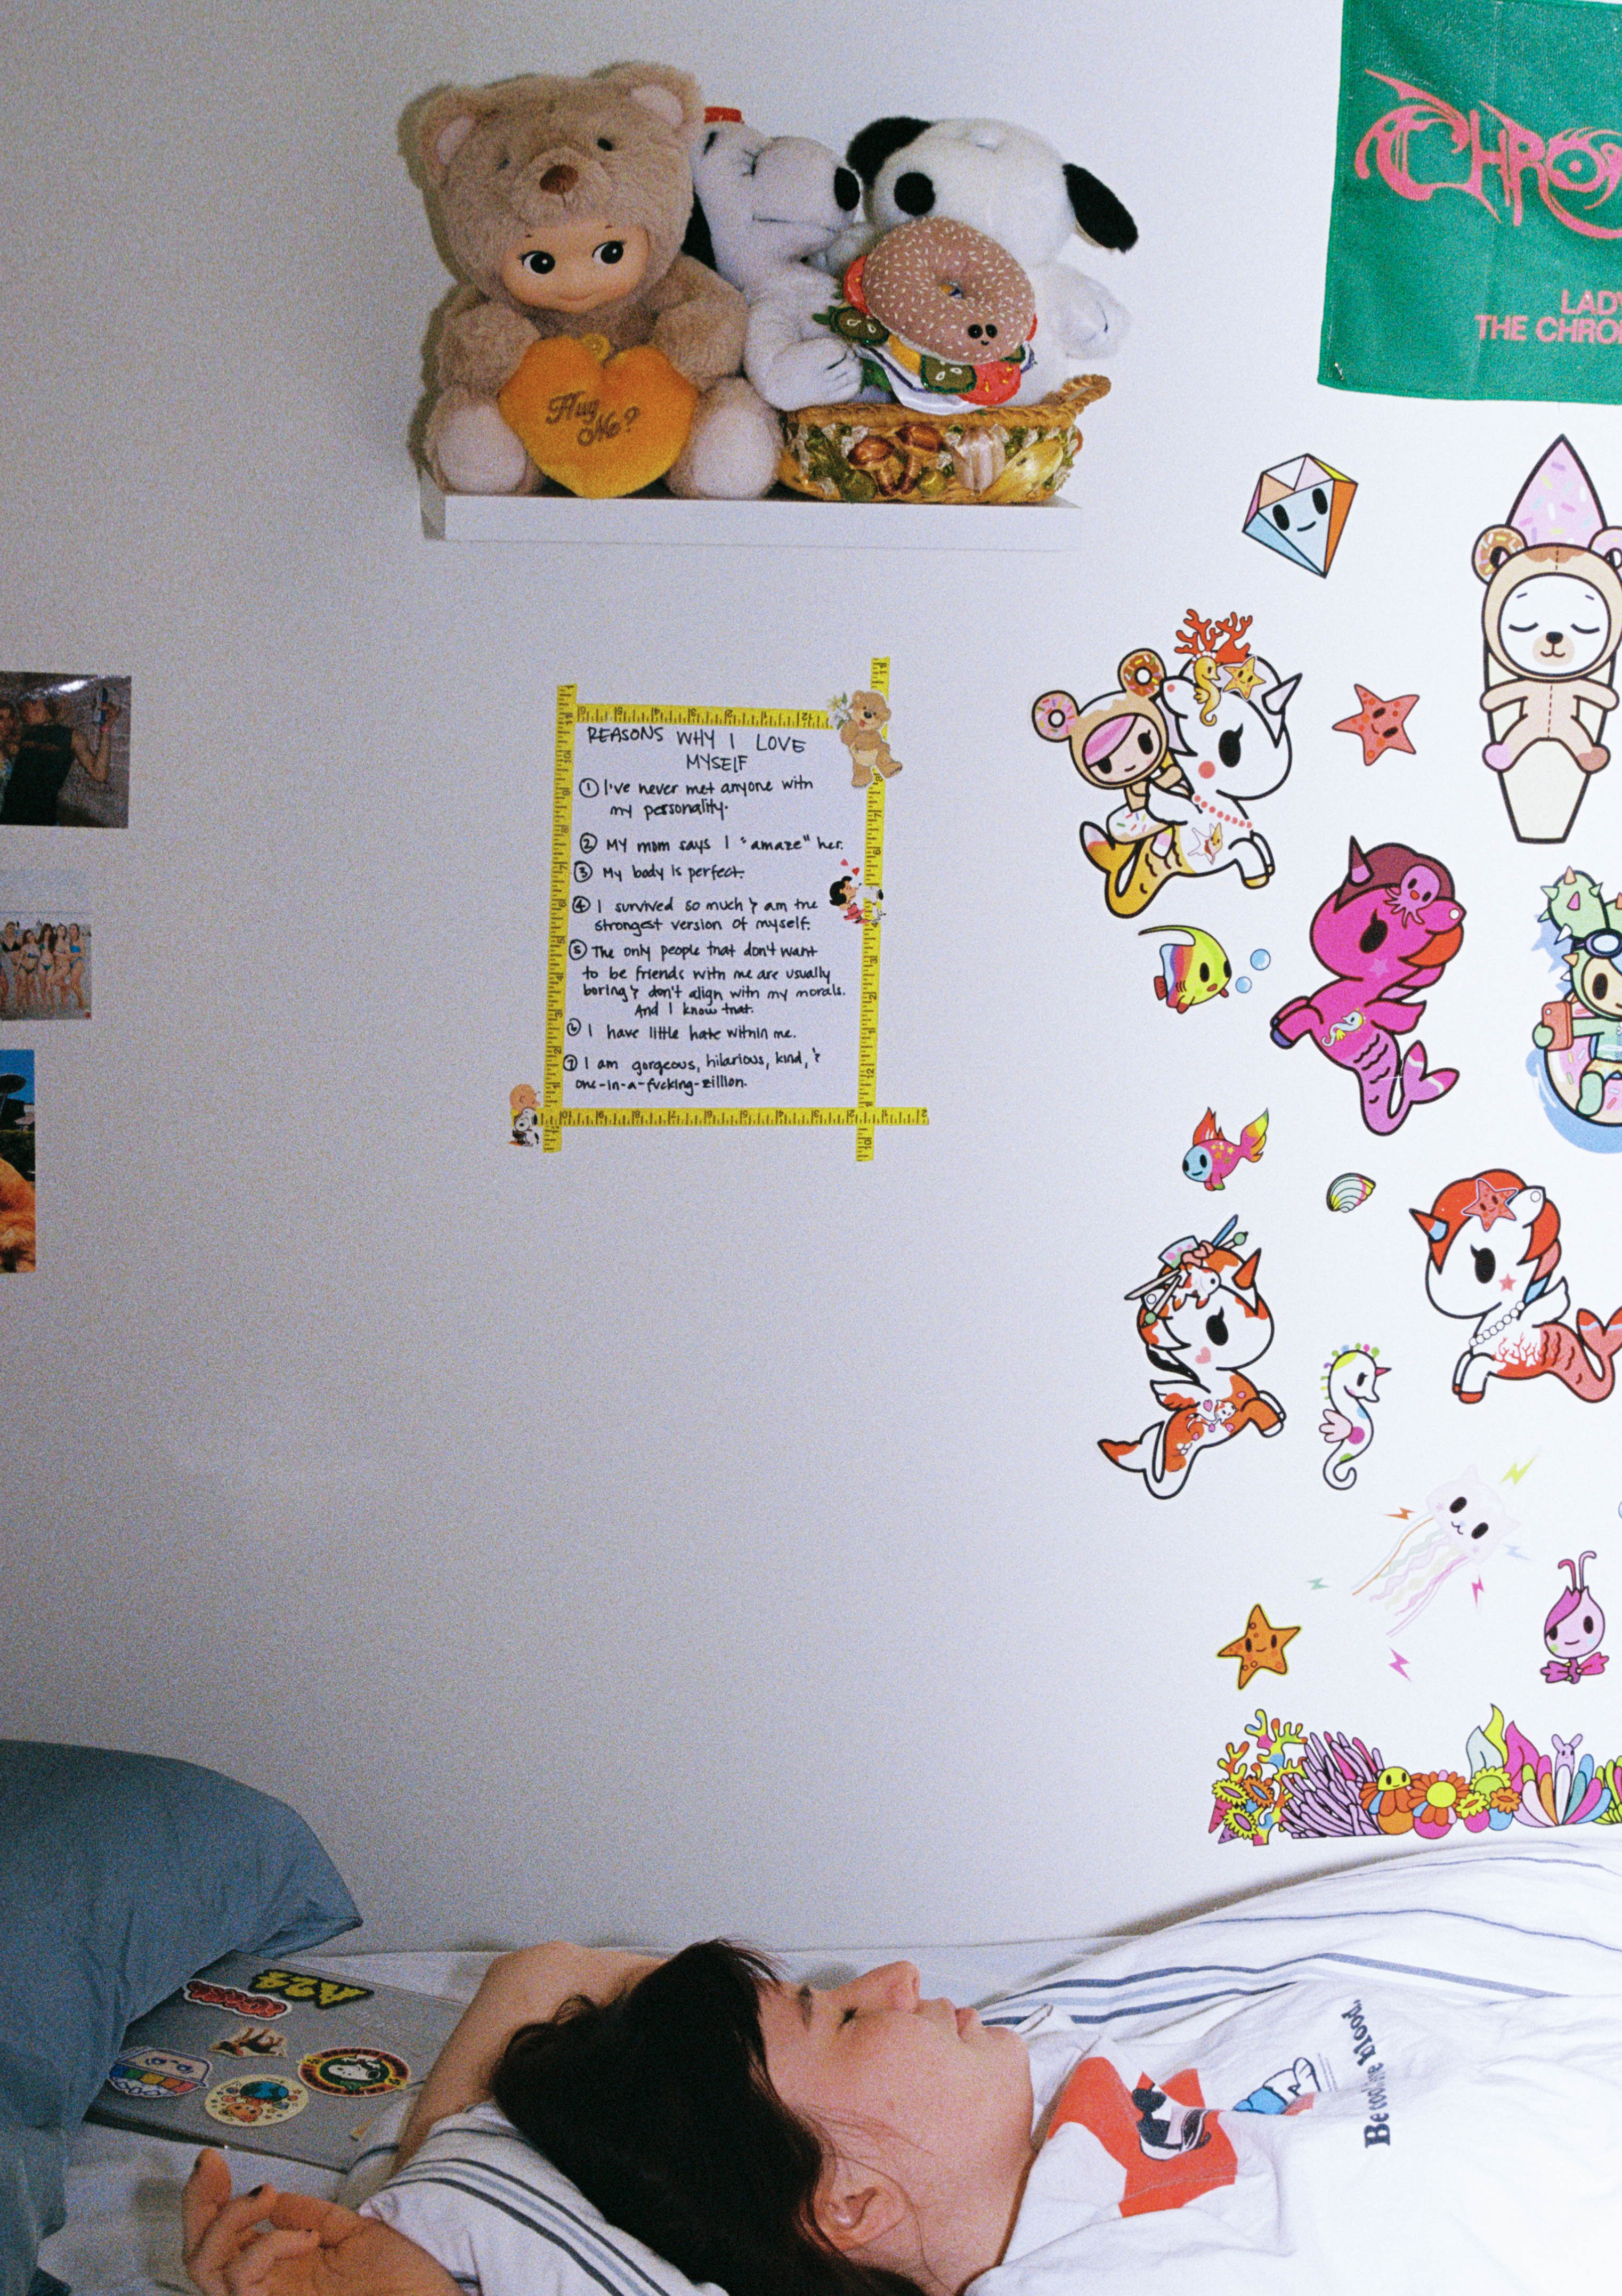 CHRO
LAD
THE CHRO
Hug
Me?
REASONS WHY I LOVE
MYSELF
① I've never met anyone with
my personality.
② MY mom says I "amaze" her.
③ My body is perfect.
④ I survived so much & am the
strongest version of myself.
⑤ The only people that don't want
to be friends with me are usually
boring & don't align with my morals.
And I know that.
⑥ I have little hate within me.
⑦ I am gorgeous, hilarious, kind, &
one-in-a-fucking-zillion.
Be cool, be blood.